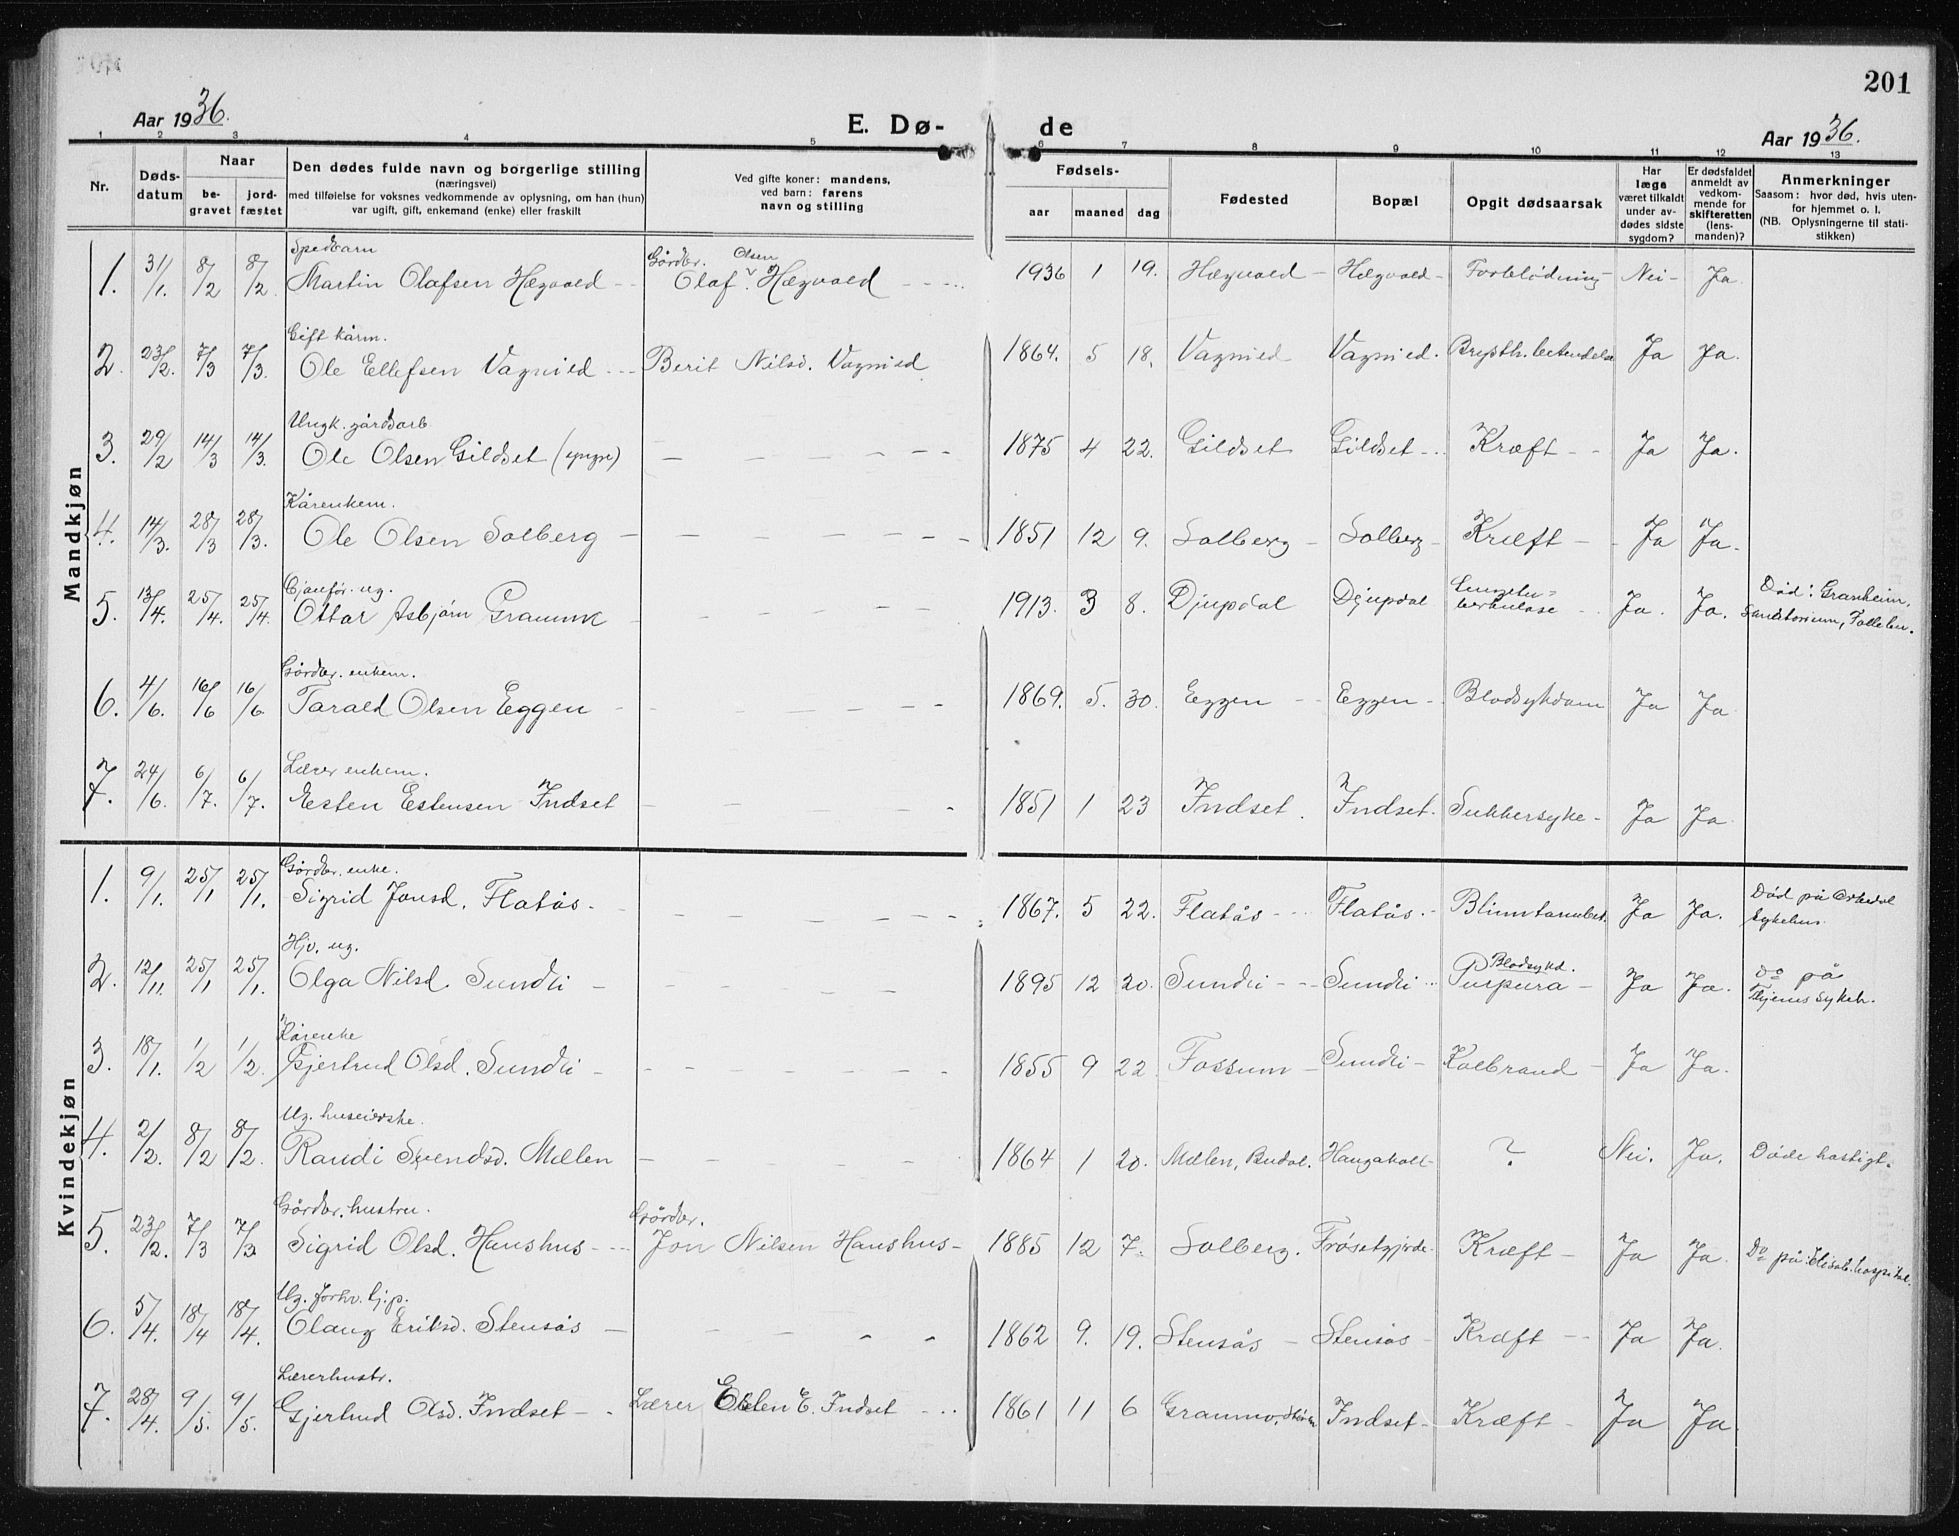 201
Aar 1936.
E. Dø- de
Aar 1936.
1 2 3 4 5 6 7 8 9 10 11 12 13
Nr.
Døds-
datum
Naar
be-
gravet
jord-
fæstet
Den dødes fulde navn og borgerlige stilling
(næringsvei)
med tilføielse for voksnes vedkommende av oplysning, om han (hun)
var ugift, gift, enkemand (enke) eller fraskilt
Ved gifte koner: mandens,
ved barn: farens
navn og stilling
Fødsels-
aar maaned dag
Fødested
Bopæl
Opgit dødsaarsak
Har
læge
været tilkaldt
under av-
dødes sidste
sygdom?
Er dødsfaldet
anmeldt av
vedkom-
mende for
skifteretten
(lens-
manden)?
Anmerkninger
Saasom: hvor død, hvis uten-
for hjemmet o. l.
(NB. Oplysningerne til stati-
stikken)
Mandkjøn
Spedbarn Gårdbr. Olsen
1. 31/1. 8/2 8/2. Martin Olafsen Hægvald Olaf Hægvald 1936 1 19. Hægvald Hægvald Forblødning Nei Ja.
Gift kårm.
2. 23/2. 7/3 7/3. Ole Ellefsen Vagnild Berit Nilsd. Vagnild 1864. 5 18. Vagnild Vagnild. Brysth. betendelse Ja Ja.
Ungk. gårdsarb
3. 29/2 14/3 14/3. Ole Olsen Gildset (yngre) 1875 4 22. Gildset Gildset Kræft Ja Ja.
Kårenkem.
4. 14/3. 28/3 28/3. Ole Olsen Solberg 1851 12 9. Solberg Solberg Kræft Ja Ja.
Sjåufør. ug. Lungetu-
5. 13/4. 25/4. 25/4. Ottar Asbjørn Gramme 1913. 3 8. Djupdal Djupdal berkulose Ja. Ja. Død: Granheim,
Sanatorium, Follebu.
Gårdbr. enkem.
6. 4/6. 16/6 16/6. Tarald Olsen Eggen 1869. 5. 30. Eggen Eggen Blodsykdom Ja Ja
Lærer enkem.
7. 24/6. 6/7. 6/7. Esten Estensen Indset 1851 1 23 Indset. Indset. Sukkersyke Ja Ja.
Kvindekjøn
Gårdbr. enke.
1. 9/1. 25/1 25/1. Sigrid Jonsd. Flatås. 1867. 5 22. Flatås Flatås. Blinntarmbet. Ja Ja. Død på Orkedal
sykehus
Hjv. ug. Blodsykd.
2. 12/11. 25/1 25/1. Olga Nilsd. Sundli 1895 12 20. Sundli Sundli Purpura Ja Ja. Do på
Fljems sykeh.
Kårenke
3. 18/1. 1/2 1/2. Gjertrud Olsd. Sundli 1855 9 22 Fossum Sundli Kolbrand Ja Ja.
Ug. huseierske.
4. 2/2. 8/2 8/2. Randi Svendsd. Mælen 1864 1 20. Mælen, Budal. Haugaholt ? Nei. Ja. Døde hastigt.
Gårdbr. hustru. Gårdbr.
5. 23/2. 7/3 7/3. Sigrid Olsd. Hanshus Jon Nilsen Hanshus 1885 12 7. Solberg. Frøsetgjerde Kræft Ja Ja. Do på Elisab. hospital.
Ug. forhv. tj.p.
6. 5/4. 18/4 18/4. Olaug Eriksd. Stensås 1862 9. 19. Stensås Stensås Kræft Ja Ja.
Lærerhustr.
7. 28/4. 9/5. 9/5. Gjertrud Olsd. Indset Lærer Esten E. Indset 1861 11 6 Grammo, Støren Indset Kræft Ja Ja.